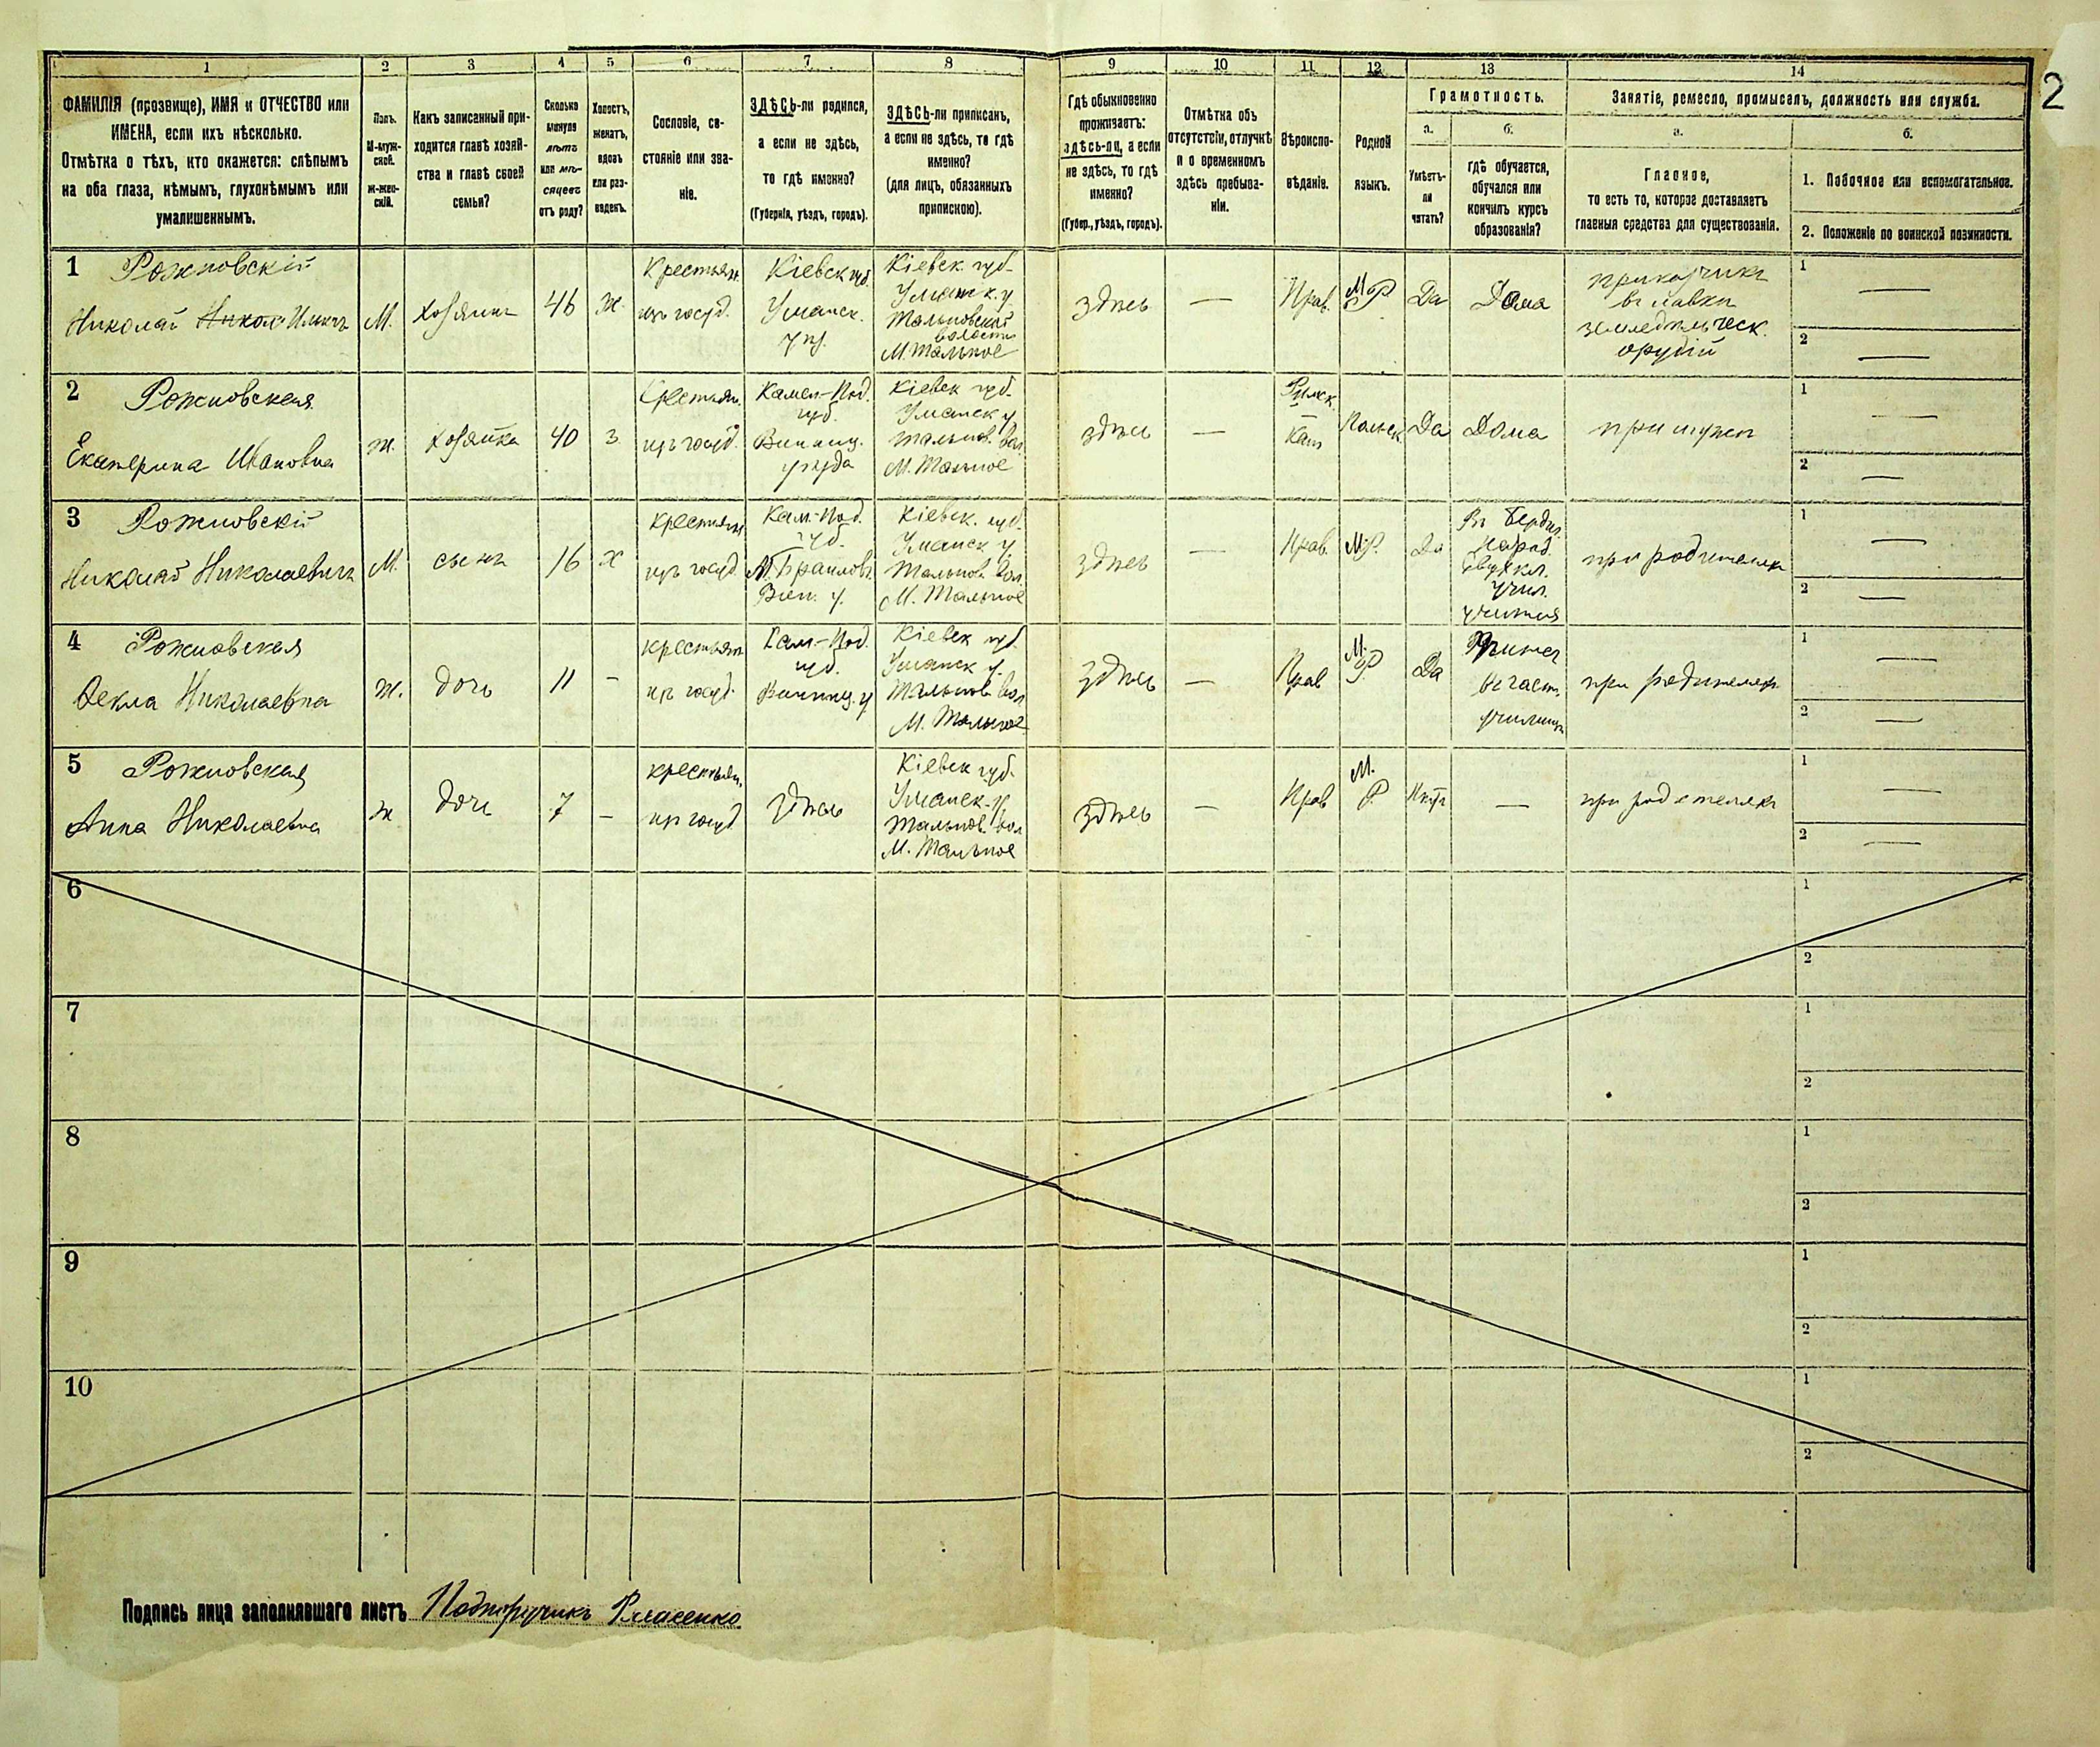 1 2 3 4 5 6 7 8 9 10 11 12 13 14
2
ФАМИЛІЯ (прозвище), ИМЯ и ОТЧЕСТВО или
ИМЕНА, если ихъ нѣсколько.
Отмѣтка о тѣхъ, кто окажется: слѣпымъ
на оба глаза, нѣмымъ, глухонѣмымъ или
умалишеннымъ.
Полъ.
М-муж-
ской.
Ж-жен-
скій.
Какъ записанный при-
ходится главѣ хозяй-
ства и главѣ своей
семьи?
Сколько
минуло
лѣтъ
или мѣ-
сяцевъ
отъ роду?
Холостъ,
женатъ,
вдовъ
или раз-
веденъ.
Сословіе, со-
стояніе или зва-
ніе.
ЗДѢСЬ-ли родился,
а если не здѣсь,
то гдѣ именно?
(Губернія, уѣздъ, городъ).
ЗДѢСЬ-ли приписанъ,
а если не здѣсь, то гдѣ
именно?
(для лицъ, обязанныхъ
припискою).
Гдѣ обыкновенно
проживаетъ:
здѣсь-ли, а если
не здѣсь, то гдѣ
именно?
(Губер., уѣздъ, городъ).
Отмѣтка объ
отсутствіи, отлучкѣ
и о временномъ
здѣсь пребыва-
ніи.
Вѣроиспо-
вѣданіе.
Родной
языкъ.
Грамотность.
а.
Умѣетъ-
ли
читать?
б.
гдѣ обучается,
обучался или
кончилъ курсъ
образованія?
Занятіе, ремесло, промыселъ, должность или служба.
а.
Главное,
то есть то, которое доставляетъ
главныя средства для существованія.
б.
1. Побочное или вспомогательное.
2. Положеніе по воинской повинности.
1 Рожновскій
Николай Никол Ильичъ
М.
хозяинъ
46
ж.
крестьян.
изъ госуд.
Кіевск губ.
Уманск.
уѣз.
Кіевск. губ.
Уманск. у.
Тальновской
волости
М. Тальное
здѣсь
—
Прав.
М. Р
Да
Дома
прикащикъ
въ лавкѣ
земледѣльческ.
орудій
1 —
2 —
2 Рожновская
Екатерина Ивановна
ж.
хозяйка
40
з
крестьян.
изъ госуд.
Камен-Под.
губ.
Винниц.
уѣзда
Кіевск губ.
Уманск у.
Тальнов. вол.
М. Тальное
здѣсь
—
Римск.
—
Кат
Польск
Да
Дома
при мужѣ
1 —
2 —
3 Рожновскій
Николай Николаевичъ
М.
сынъ
16
х
крестьян
изъ госуд.
Кам.-Под.
губ.
М. Браиловъ
Вин. у.
Кіевск. губ.
Уманск у.
Тальнов. вол.
М. Тальное
здѣсь
—
Прав.
М.Р.
Да
Въ Бердич.
народ.
двухкл.
учил.
учится
при родителяхъ
1 —
2 —
4 Рожновская
Фекла Николаевна
ж.
дочь
11
-
крестьян
изъ госуд.
Кам.-Под.
губ.
Винниц. у
Кіевск губ.
Уманск у.
Тальнов. вол
М. Тальное
здѣсь
—
Прав
М.
Р
Да
въ частн.
училищѣ
при родителяхъ
1 —
2 —
5 Рожновская
Анна Николаевна
ж
дочь
7
-
крестьян.
изъ госуд
здѣсь
Кіевск губ.
Уманск. у.
Тальнов. вол
М. Тальное
здѣсь
—
Прав
М.
Р.
Нѣтъ
—
при родителяхъ
1 —
2 —
6 1
2
7 1
2
8 1
2
9 1
2
10 1
2
Подпись лица заполнявшаго листъ Подпоручикъ